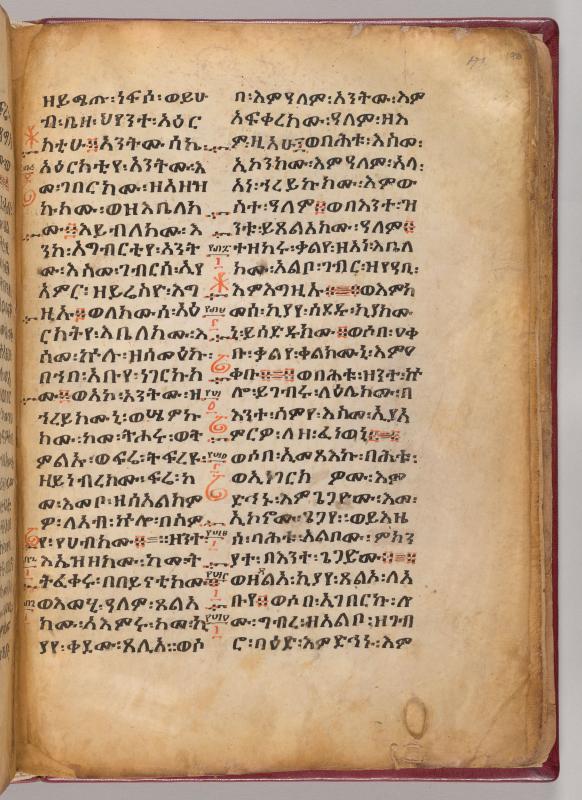 ዘይሜጡ፡ነፍሶ፡ወይሁ
ብ፡ቤዛ፡ህየንተ፡አዕር
ክቲሁ።አንትሙሰኬ
አዕርክቲየ፡አንትሙ፡እ
መ፡ገበርክሙ፡ዘአዘዝ
ኩክሙ፡ወዝእቤለክ
ሙ።እይብለክሙ፡እ
ንከ፡አግብርትየ፡አንት
ሙ፡እስመ፡ገብርሰ፡ኢየ
አምር፡ዘይሬስዮ፡እግ
ዚኡ።ወለክሙሰ፡አዕ
ርክትየ፡እቤለክሙ፡እ
ስመ፡ኵሎ፡ዘሰማዕኩ፡
በኀበ፡አቡየ፡ነገርኩክ
ሙ።ወአኮ፡አንትሙ፡ዘ
ኀረይክሙኒ፡ወሤምኩ
ክሙ፡ከመ፡ትሖሩ፡ወት
ምልኡ፡ወፍሬ፡ትፍረዩ፡
ዘይነብረክሙ፡ፍሬ፡ከ
መ፡እመቦ፡ዘሰአልክም
ዎ፡ለአብ፡ኵሎ፡በስም
የ፡የሀብክሙ።ዘንተ
እኤዝዘክሙ፡ከመ፡ት
ትፈቀሩ፡በበይናቲክሙ
ወእመሂ፡ዓለም፡ጸልአ
ክሙ፡ለአምሩ፡ከመ፡ኪ
ያየ፡ቀደሙ፡ጸሊአ፡ወሶ
በ፡እምዓለም፡አንትሙ፡እም
አፍቀረክሙ፡ዓለም፡ዘእ
ምዚአሁ።ወበሕቱ፡እስመ፡
ኢኮንክሙ፡እምዓለም፡አላ፡
አነ፡ኀረይኩክሙ፡እምው
ስተ፡ዓለም።ወበእንተ፡ዝ
ንቱ፡ይጸልአክሙ፡ዓለም።
ተዘከሩ፡ቃልየ፡ዘአነ፡እቤለ
ክሙ፡አልቦ፡ገብር፡ዘየዓቢ፡
እምእግዚኡ።ወእምከ
መሰ፡ኪያየ፡ሰደዱ፡ኪያክሙ
ኒ፡ይሰድዱክሙ።ወሶበ፡ዐቀ
ቡ፡ቃልየ፡ቀልክሙኒ፡እምዐ
ቀቡ።ወበሕቱ፡ዘንተ፡ኵ
ሎ፡ይገብሩ፡ለዕሌክሙ፡በ
እንተ፡ስምየ፡እስመ፡ኢያአ
ምርዎ፡ለዘ፡ፈነወኒ።
ወሶበ፡ኢመጻእኩ፡በሕቱ፡
ወኢነገርክዎሙ፡እም
ኢኮኖሙ፡ጌጋየ፡ወይእዜ
ሰ፡ባሕቱ፡አልቦሙ፡ምክን
ያተ፡በእንተ፡ጌጋዮሙ።
ወዘጸልአ፡ኪያየ፡ጸልአ፡ለአ
ቡየ።ወሶበ፡እገበርኩ፡ሎ
ሙ፡ግብረ፡ዘአልቦ፡ዘገብ
ሮ፡ባዕድ፡እምድኅኑ፡እም